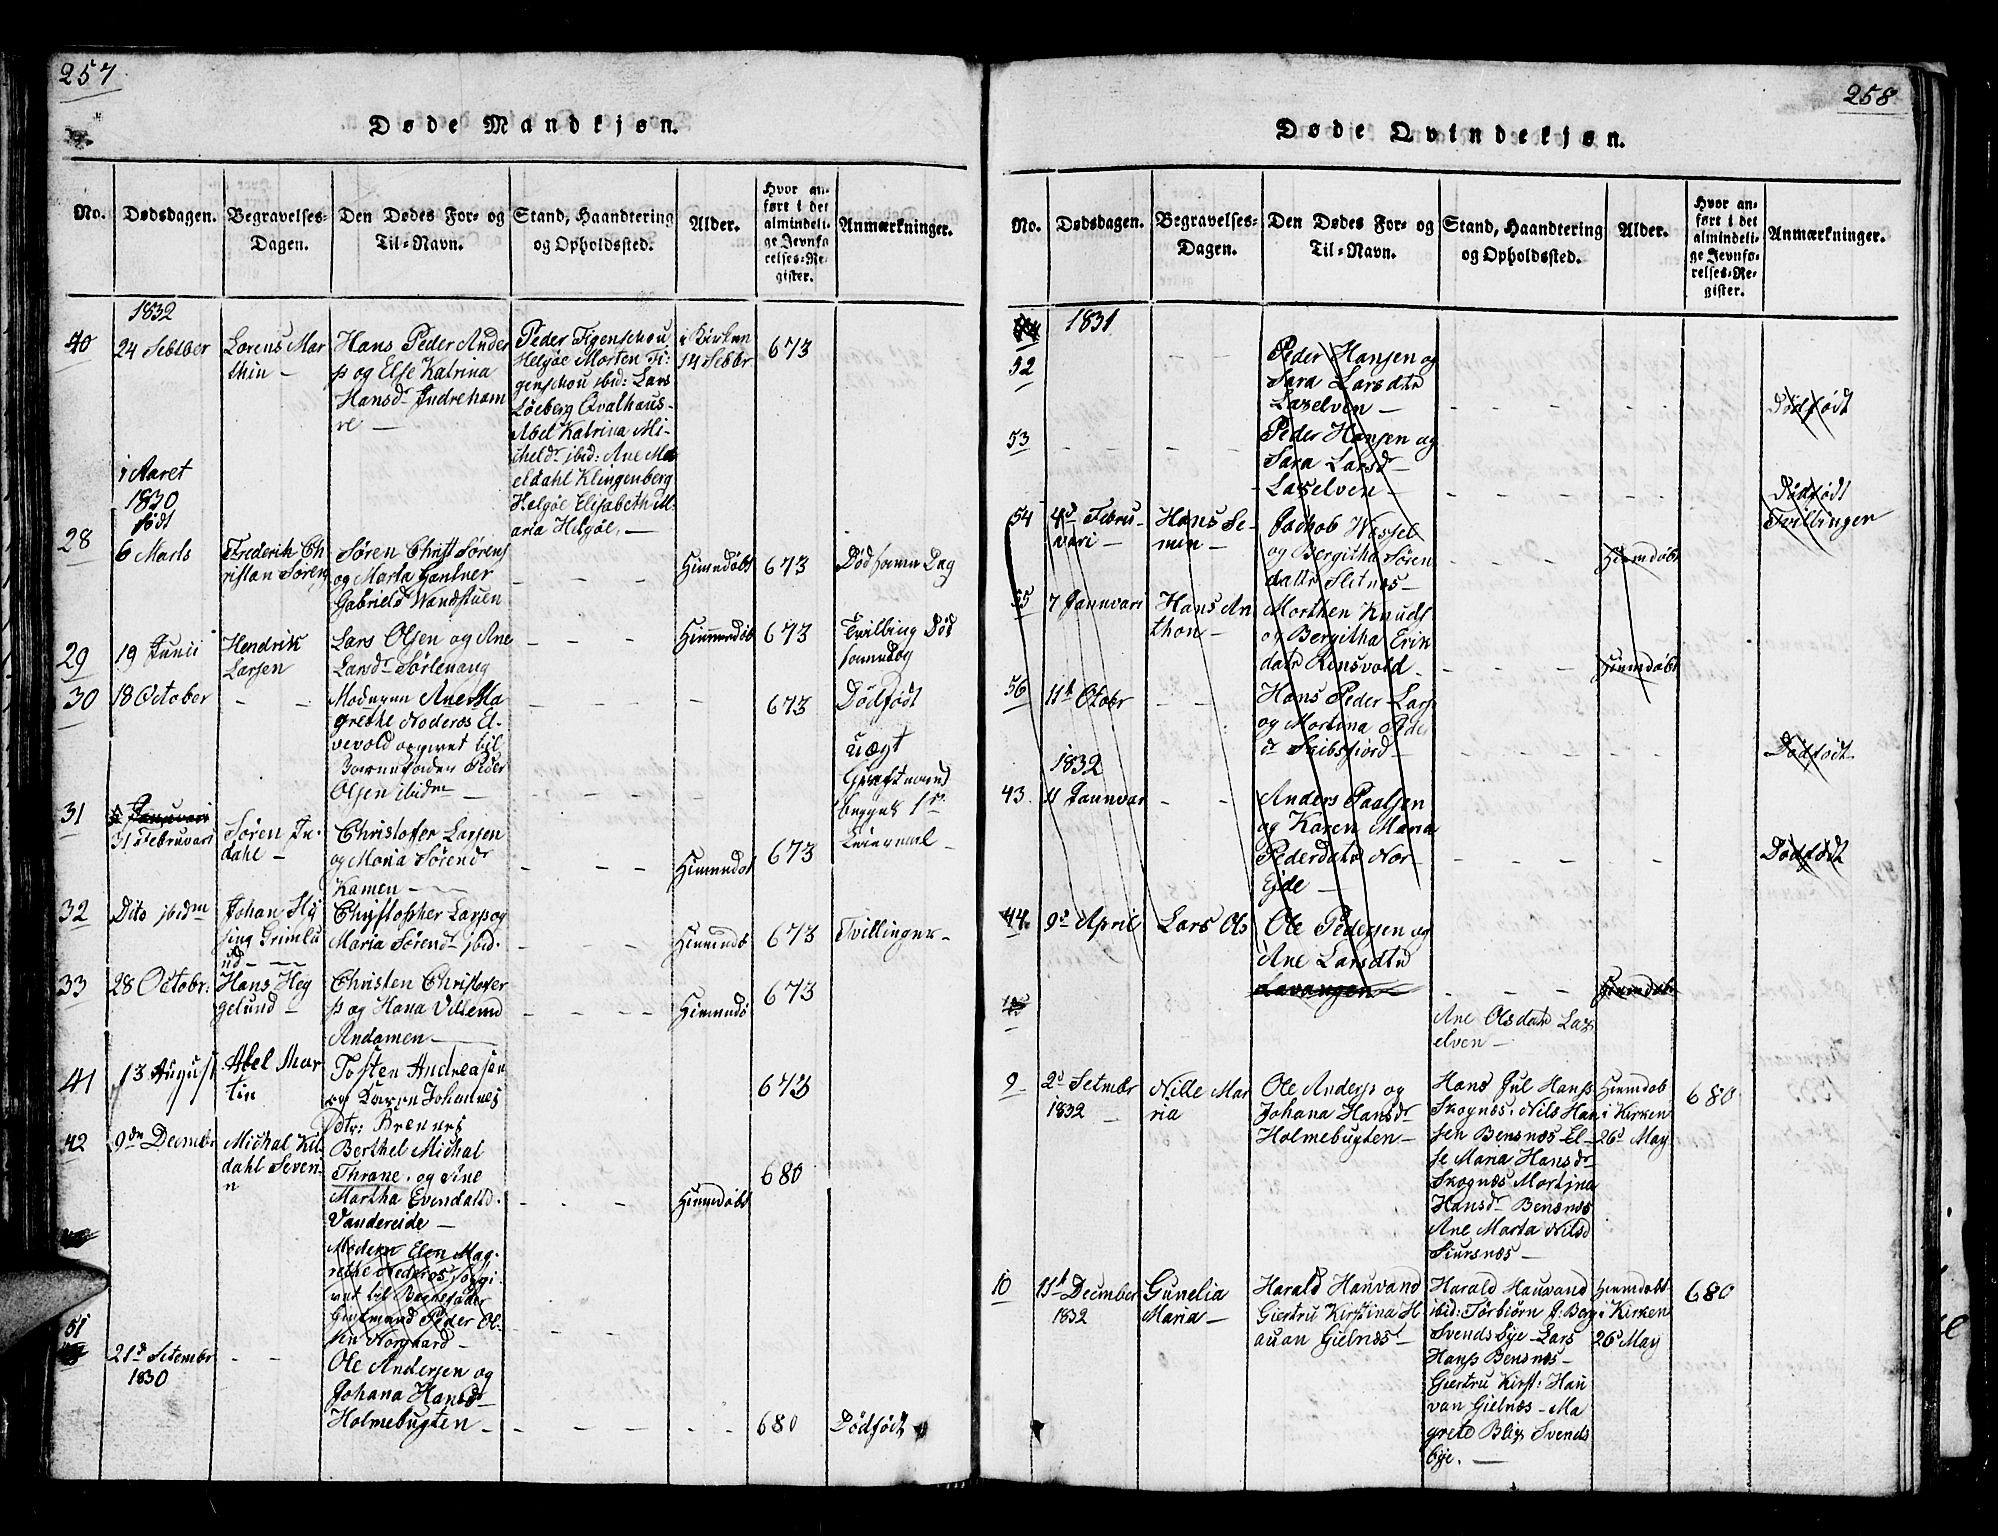 257
Døde Mandkjøn.
No.
Dødsdagen.
Begravelses-
Dagen.
Den Dødes For- og
Til-Navn.
Stand, Haandtering
og Opholdssted.
Alder.
Hvor an-
ført i det
almindeli-
ge Jevnfø
relses-Re-
gister.
Anmærkninger.
1832
40
24 Sebtber
Lorens Mar
thin -
Hans Peder Ander
þ og Else Katrina
Hansdr Indreham
re -
Peder Figenschou
Helgøe Morten Fi-
genschou ibid: Lars
Løeberg Qvalhaus-
Abel Katrina Mi-
cheldr ibid: Ane Ma
eldahl Klingenberg
Helgøe Elisabeth M-
aria Helgøe. -
i Kirken
14 Sebbr
673
i Aaret
1830
født
28
6 Marts
Frederik Ch
ristian Søren
Søren Christ Sørens
og Marta Gantner
Gabrield Wandstuen
Hiemdøbt
673
Død samme Dag
29
19 Junii
Hendrik
Larsen
Lars Olsen og Ane
Larsdr Sørlenang
Hiemmedøb
673
Tvilling Død
sammedag
30
18 October
Moderen Ane Ma
grethe Noderos El-
vevold opgivet til
Barnefader Peder
Olsen ibidm -
673
Dødfødt
uægt
begges 1ste
Leiermal -
31
31 Februvari
Søren Ju-
dahl -
Christofer Larsen
og Maria Sørend
Kamen -
Hiemmdøt
673
32
Dito ibidm
Johan Hy
sing Grimlu
nd -
Christopher Larsog
Maria Sørendr ibid.
Hiemmdø
673
Tvillinger -
33
28 Octobr:
Hans Heg
gelund -
Christen Christofer
þ og Hana Villemd
Andamen -
Hiemmdø
673
41
13 August
Abel Mar
tin
Tosten Andreasen
og Karen Johannes
Dtr: Brennes
673
42
9de Decembr
Michal Kil
dahl Severi-
n
Berthel Michal
Thrane. og Ane
Martha Evendatd.
Vandereide -
Hiemmdøbt
680
Modern Elen Mag-
rethe Nederos, opgi-
vet til Barnefader
Giftmand Peder Ol-
sen Norgaard -
51
21d Setembr
1830
Ole Andersen og
Johana Hansdr
Holmebugten -
680
Dødfødt
258
Døde Qvindekjøn.
No.
Dødsdagen.
Begravelses-
Dagen.
Den Dødes For- og
Til-Navn.
Stand, Haandtering
og Opholdssted.
Alder.
Hvor an-
ført i det
almindeli-
ge Jevnfø-
relses-Re-
gister.
Anmærkninger.
1831
52
Peder Hansen og
Sara Larsdtr
Laxelven -
Dødfødt
53
Peder Hansen og
Sara Larsdr
Laxelven -
Dødfødt
Tvillinger
54
4d Febru-
vari -
Hans Se-
men -
Jachob Wessel
og Bergitha Søren
dattr Sletnæs -
Hiemdøbt
55
7 Jannvari
Hans An
thon -
Morthen Knuds
og Bergitha Erik
datr Rensvold -
Hiemdøbt
56
11d Otobr
Hans Peder Lars
og Mortina Pede
dr Saibsfiord -
Dødfødt
1832
43.
11 Jannvar
Anders Paalsen
og Karen Maria
Pederdatr Nor-
Eide -
Dødfødt
44.
9d April
Lars Ols
Ole Pedersen og
Ane Larsdtr
Lavangen -
Hiemdøbt
Ane Olsdatr Lax
elven -
9
2d Setmbr
1832
Nille Mar
ria
Ole Andersp og
Johana Hansdr
Holmebugten -
Hans Jul Hansp
Skognæs, Nils Han
sen Bensnæs El-
se Maria Hansdr
Skognæs Mortina
Hansdr Bensnæs
Ane Marta Nilsd
Siursnæs -
Hiemdøb
i Kirken
26d May
680
10
11d December
1832
Gunelia
Maria -
Harald Hauvand
Giertru Kirstina H
auan Gielnæs -
Harald Hauvand
ibid: Torbiørn J. Berg
Svends Øye - Lars
Hansp Bensnæs -
Giertru Kirst: Hau
van Gielnæs - Ma
grete Blix Svends
Øye. -
Hiemdøbt
i Kirken
26d May
680